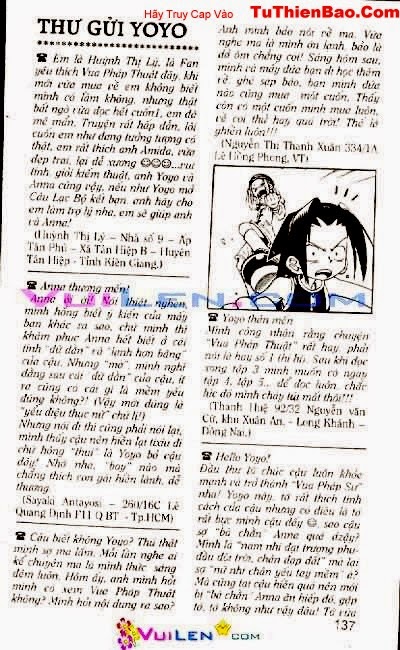 Hãy Truy Cap Vào TuThienBao.Com
THƯ GỬI YOYO
☎ Em là Huỳnh Thị Lý, là Fan
yêu thích Vua Pháp Thuật đây, khi
mới vừa mua về em không biết
mình có lầm không, nhưng thật
bất ngờ vừa đọc hết cuốn1, em đã
mê mẩn. Truyện rất hấp dẫn, lôi
cuốn em như đang tưởng tượng có
thật, em rất thích anh Amida, vừa
đẹp trai, lại dễ thương ☺☺☺...vui
tính, giỏi kiếm thuật, anh Yoyo và
Anna cũng vậy, nếu như Yoyo mở
Câu Lạc Bộ kết bạn, anh hãy cho
em làm trợ lý nha, em sẽ giúp anh
và Anna!
(Huỳnh Thị Lý – Nhà số 9 – Ấp
Tân Phú – Xã Tân Hiệp B – Huyện
Tân Hiệp - Tỉnh Kiên Giang.)
☎ Anna thương mến!
Anna ơi ới! Nói thiệt nghen,
mình hổng biết ý kiến của mấy
bạn khác ra sao, chứ mình thì
khâm phục Anna hết biết ở cái
tính "dữ dằn" và "lạnh hơn băng"
của cậu. Nhưng "mờ", mình nghĩ
đằng sau cái "dữ dằn" của cậu, ít
ra cũng có cái gì là mềm yếu
đúng không?! (Vậy mới đúng là
"yểu điệu thục nữ" chứ lị!)
Nhưng nói đi thì cũng phải nói lại,
mình thấy cậu nên hiền lại tí xíu đi
chứ hổng "thui" là Yoyo bỏ cậu
đấy! Nhớ nha, "boy" nào mà
chẳng thích con gái hiền lành, dễ
thương.
(Sayala Antayosi – 260/16C Lê
Quang Định F11 Q BT - Tp.HCM)
☎ Cậu biết không Yoyo? Thú thật
mình sợ ma lắm. Mỗi lần nghe ai
kể chuyện ma là mình thức sáng
đêm luôn. Hôm ấy, anh mình hỏi
mình có xem Vua Pháp Thuật
không? Mình hỏi nội dung ra sao?
Anh mình bảo nói về ma. Vừa
nghe ma là mình ớn lạnh, bảo là
đồ ôm chẳng coi! Sáng hôm sau,
mình và mấy đứa bạn đi học thêm
về, ghé sạp báo, bạn mình đứa
nào cũng mua một cuốn. Thấy
còn có một cuốn mình mua luôn,
về coi thế hay quá trời! Thế là
ghiền luôn!!!
(Nguyễn Thị Thanh Xuân 334/1A
Lê Hồng Phong, VT)
☎ Yoyo thân mến
Mình công nhận rằng chuyện
"Vua Pháp Thuật" rất hay, phải
nói là hay số 1 thì hổ. Sau khi đọc
xong tập 3 mình muốn có ngay
tập 4, tập 5... để đọc luôn, chắc
lúc đó mình chạy tủi mắt thôi!!!
(Thanh Huệ 92/32 Nguyễn văn
Cừ, khu Xuân An, - Long Khánh –
Đồng Nai.)
☎ Hello Yoyo!
Đầu thư tớ chúc cậu luôn khỏe
mạnh và trở thành "Vua Pháp Sư"
nha! Yoyo này, tớ rất thích tính
cách của cậu nhưng có điều là tớ
rất bực mình cậu đấy ☺, sao cậu
sợ "bà chằn" Anna quá dzậy?
Mình là "nam nhi đại trượng phu-
đầu đội trời, chân đạp đất" mà lại
sợ "nữ nhi chân yếu tay mềm" à?
Mà cũng tại cậu hiền quá nên mới
bị "bà chằn" Anna ăn hiếp đó, gặp
tớ, tớ không như vậy đâu! Tớ vừa
137
VuiLen.com
VuiLen.com